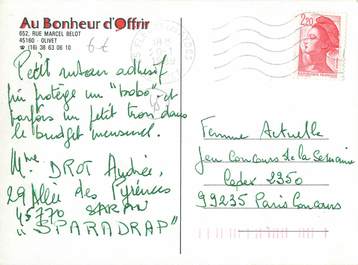 Au Bonheur d'Offrir
652, RUE MARCEL BELOT
45160 - OLIVET
☎ (16) 38 63 06 10
6 €
2,20
Petit ruban adhésif
qui protège un "bobo" et
parfois un petit trou dans
le budget mensuel.
Mme DROT Andrée,
29 Allée des Pyrénées
45770 SARAN
"SPARADRAP"
Femme Actuelle
Jeu Concours de la Semaine
Cedex 2350
99235 Paris Concours